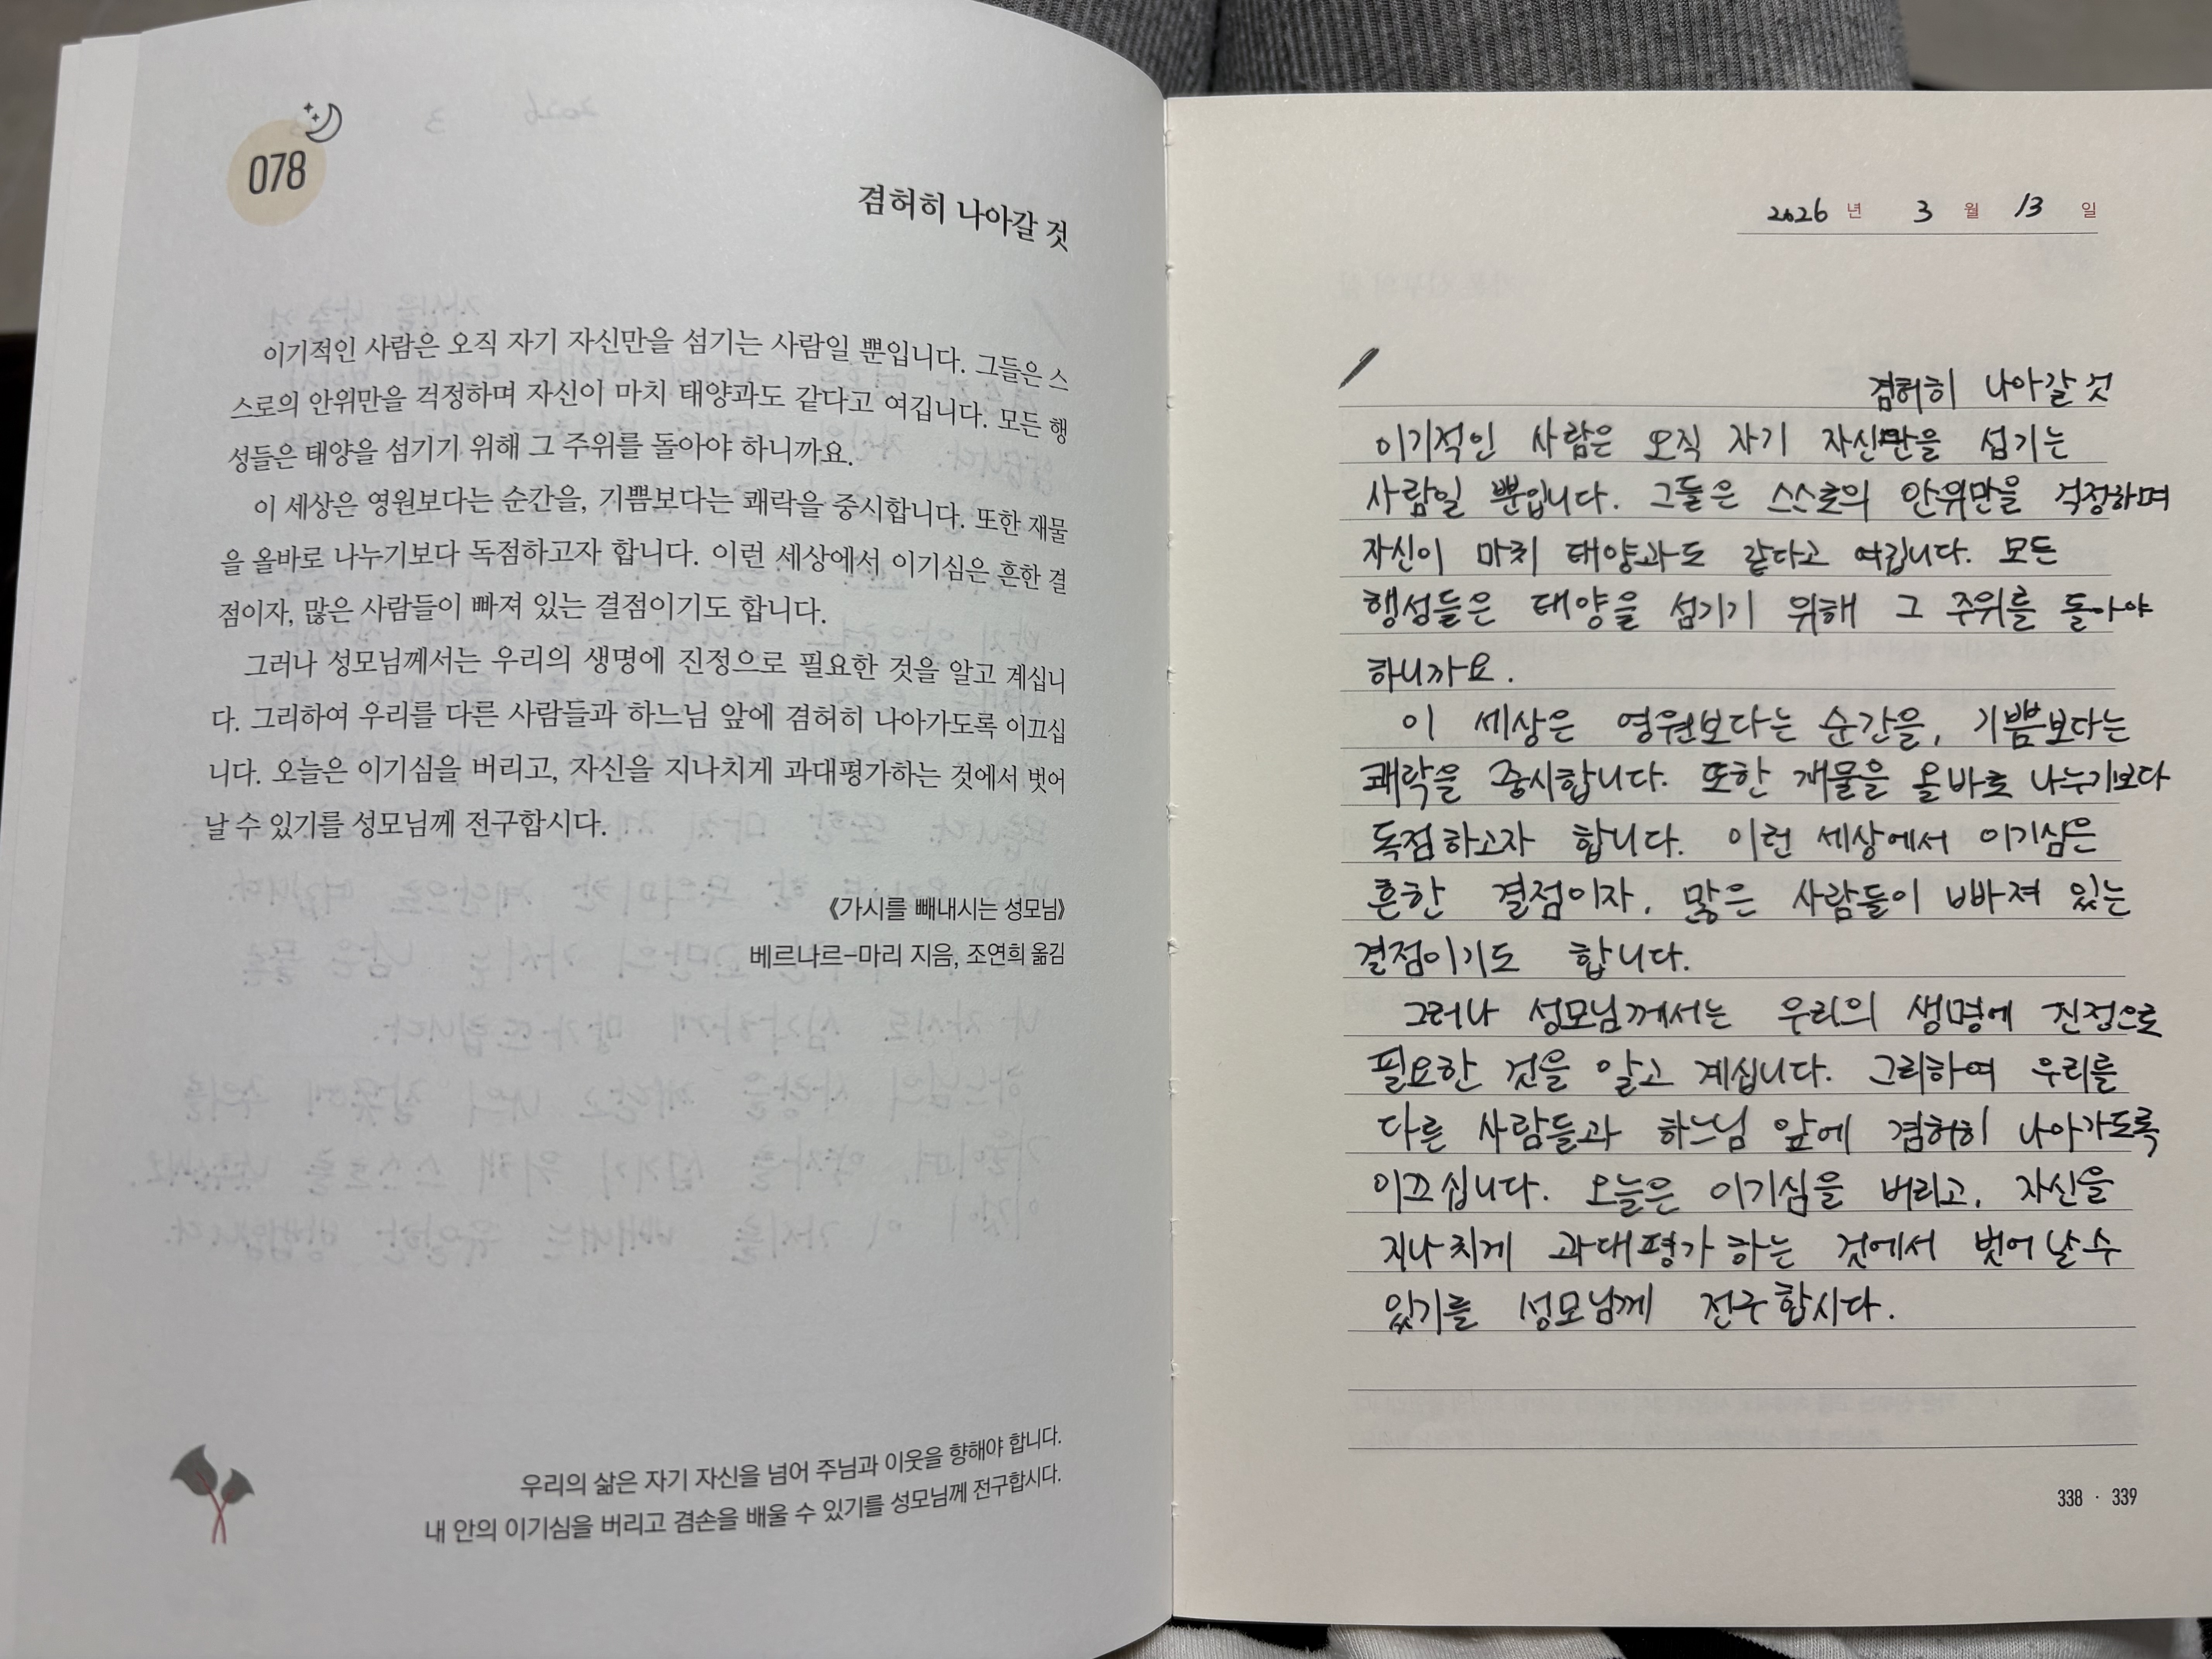 078
겸허히 나아갈 것
이기적인 사람은 오직 자기 자신만을 섬기는 사람일 뿐입니다. 그들은 스
스로의 안위만을 걱정하며 자신이 마치 태양과도 같다고 여깁니다. 모든 행
성들은 태양을 섬기기 위해 그 주위를 돌아야 하니까요.
이 세상은 영원보다는 순간을, 기쁨보다는 쾌락을 중시합니다. 또한 재물
을 올바로 나누기보다 독점하고자 합니다. 이런 세상에서 이기심은 흔한 결
점이자, 많은 사람들이 빠져 있는 결점이기도 합니다.
그러나 성모님께서는 우리의 생명에 진정으로 필요한 것을 알고 계십니
다. 그리하여 우리를 다른 사람들과 하느님 앞에 겸허히 나아가도록 이끄십
니다. 오늘은 이기심을 버리고, 자신을 지나치게 과대평가하는 것에서 벗어
날 수 있기를 성모님께 전구합시다.
《가시를 빼내시는 성모님》
베르나르-마리 지음, 조연희 옮김
우리의 삶은 자기 자신을 넘어 주님과 이웃을 향해야 합니다.
내 안의 이기심을 버리고 겸손을 배울 수 있기를 성모님께 전구합시다.
2026 년 3 월 13 일
겸허히 나아갈 것
이기적인 사람은 오직 자기 자신만을 섬기는
사람일 뿐입니다. 그들은 스스로의 안위만을 걱정하며
자신이 마치 태양과도 같다고 여깁니다. 모든
행성들은 태양을 섬기기 위해 그 주위를 돌아야
하니까요.
이 세상은 영원보다는 순간을, 기쁨보다는
쾌락을 중시합니다. 또한 재물을 올바로 나누기보다
독점하고자 합니다. 이런 세상에서 이기심은
흔한 결점이자, 많은 사람들이 빠져 있는
결점이기도 합니다.
그러나 성모님께서는 우리의 생명에 진정으로
필요한 것을 알고 계십니다. 그리하여 우리를
다른 사람들과 하느님 앞에 겸허히 나아가도록
이끄십니다. 오늘은 이기심을 버리고, 자신을
지나치게 과대평가하는 것에서 벗어날 수
있기를 성모님께 전구합시다.
338 · 339